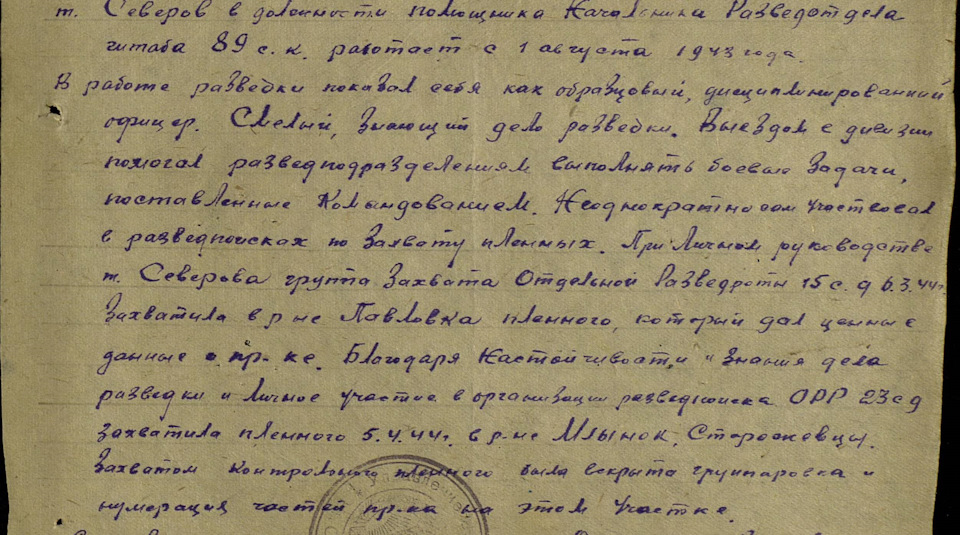 т. Северов в должности помощника Начальника Разведотдела
штаба 89 с.к. работает с 1 августа 1943 года.
В работе разведки показал себя как образцовый, дисциплинированный
офицер. Смелый, знающий дело разведки. Выездом в дивизии
помогал разведподразделениям выполнять боевые задачи,
поставленные Командованием. Неоднократно сам участвовал
в разведпоисках по захвату пленных. При личном руководстве
т. Северова группа захвата Отдельной Разведроты 15 с.д 6.3.44г.
захватила в р-не Павловка пленного, который дал ценные
данные о пр-ке. Благодаря настойчивости, и знания дела
разведки и личное участие в организации разведпоиска ОРР 23 с д
захватила пленного 5.4.44г. в р-не Млынок,
Захватом контрольного пленного была вскрыта группировка и
нумерация частей пр-ка на этом участке.